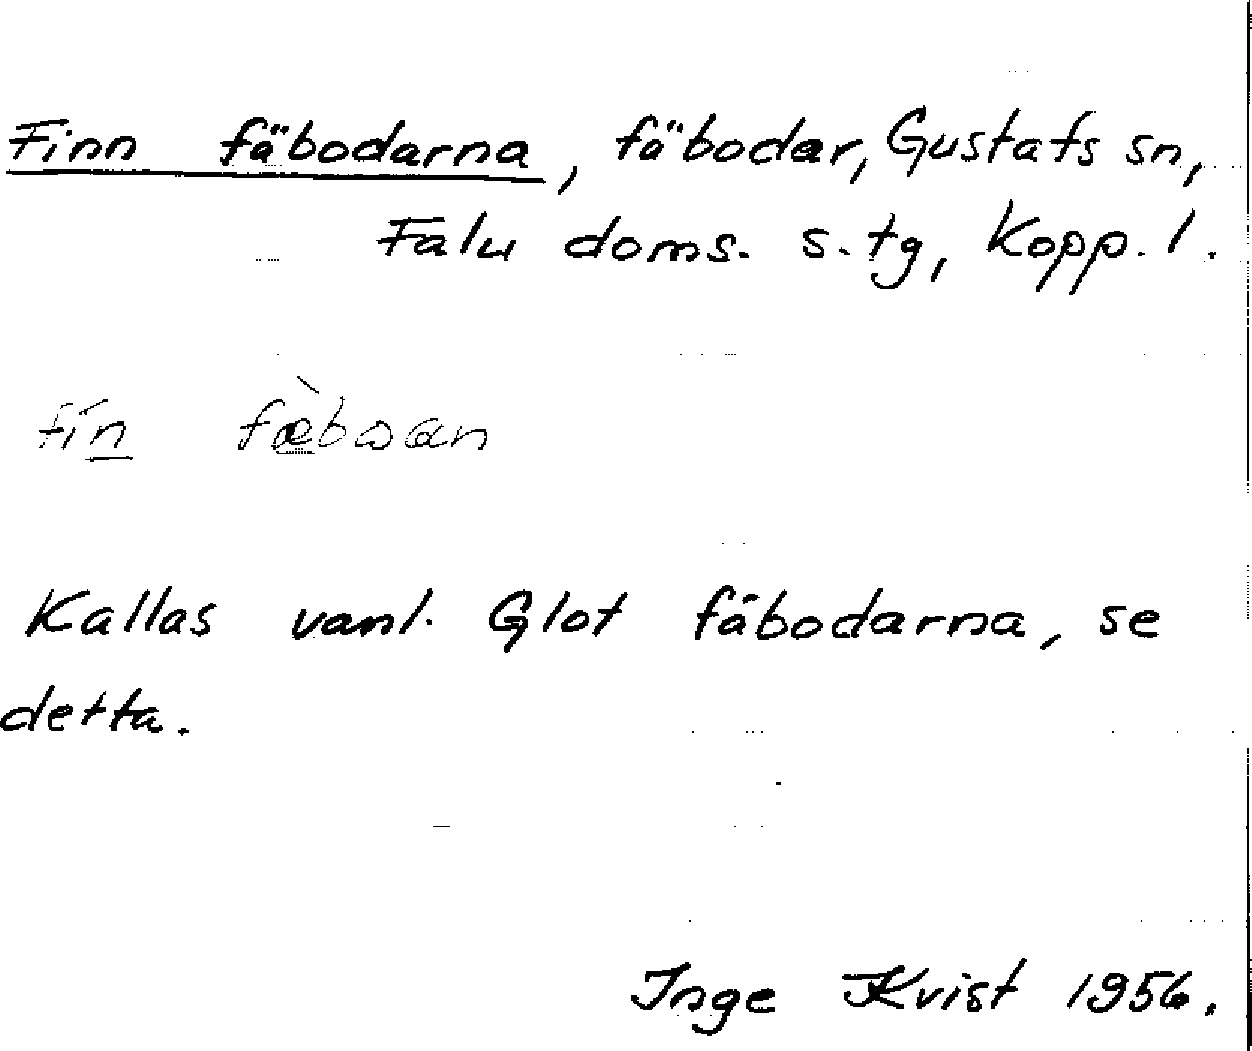 Finn fäbodarna, fäbodar, Gustafs sn,
Falu doms. s. tg, Kopp. l.
fín fæ̀bωan
Kallas vanl. Glot fäbodarna, se
detta.
Inge Kvist 1956.